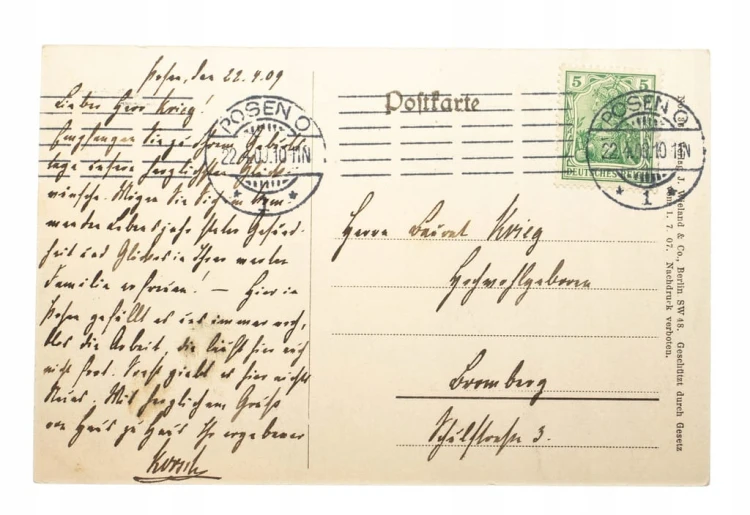 Posen, den 22.4.09
Lieber Herr Krieg!
Empfangen Sie zu Ihrem Geburts-
tage unsere herzlichsten Glück-
wünsche. Mögen Sie sich im kom-
menden Lebensjahr steter Gesund-
heit und Glückes in Ihrer werten
Familie erfreuen! — Hier in
Posen gefällt es uns immer noch,
als die Arbeit, die hier
nicht Sonst giebt es hier nichts
Neues. Mit herzlichem Gruß
von Haus zu Haus Ihr ergebener
Korsch
Postkarte
POSEN O
22.4.09.10-11N
* 1 *
5 5
DEUTSCHES REICH
POSEN O
22.4.09.10-11N
* 1 *
Herrn Baurat Krieg
Hochwohlgeboren
Bromberg
Schulstraße 3.
J. Wieland & Co., Berlin SW 48. Geschützt durch Gesetz
1. 7. 07. Nachdruck verboten.